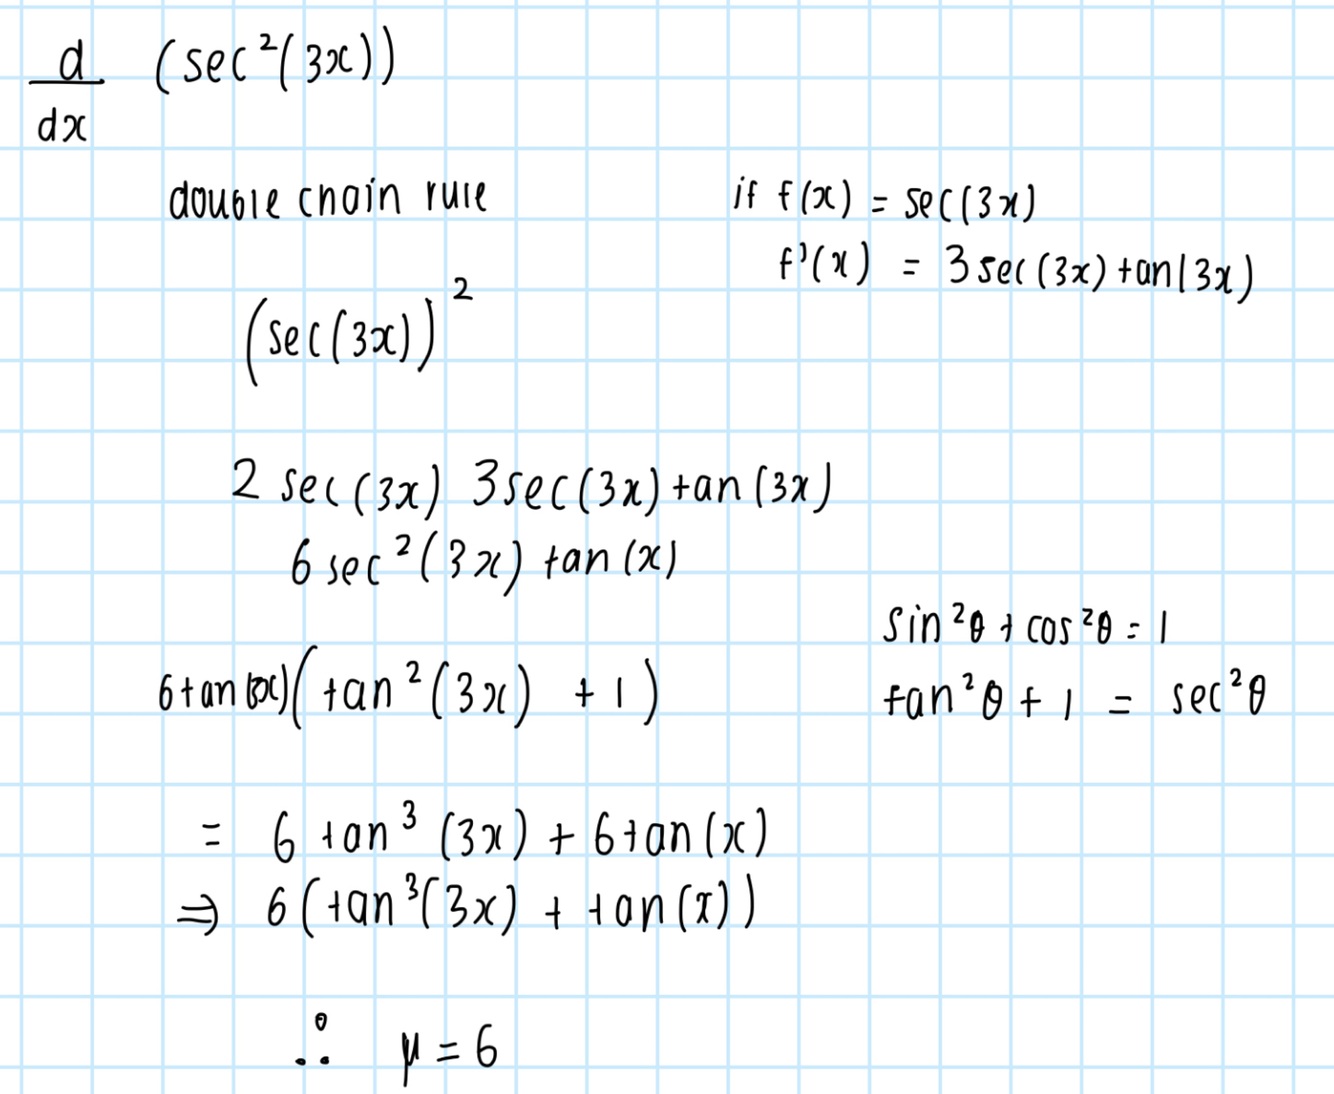 d/dx (sec²(3x))
double chain rule
if f(x) = sec(3x)
f'(x) = 3sec(3x)tan(3x)
(sec(3x))²
2 sec(3x) 3sec(3x)tan(3x)
6 sec²(3x) tan(x)
sin²θ + cos²θ = 1
6tan(3x)(tan²(3x) + 1)
tan²θ + 1 = sec²θ
= 6 tan³(3x) + 6tan(x)
⇒ 6(tan³(3x) + tan(x))
∴ μ = 6